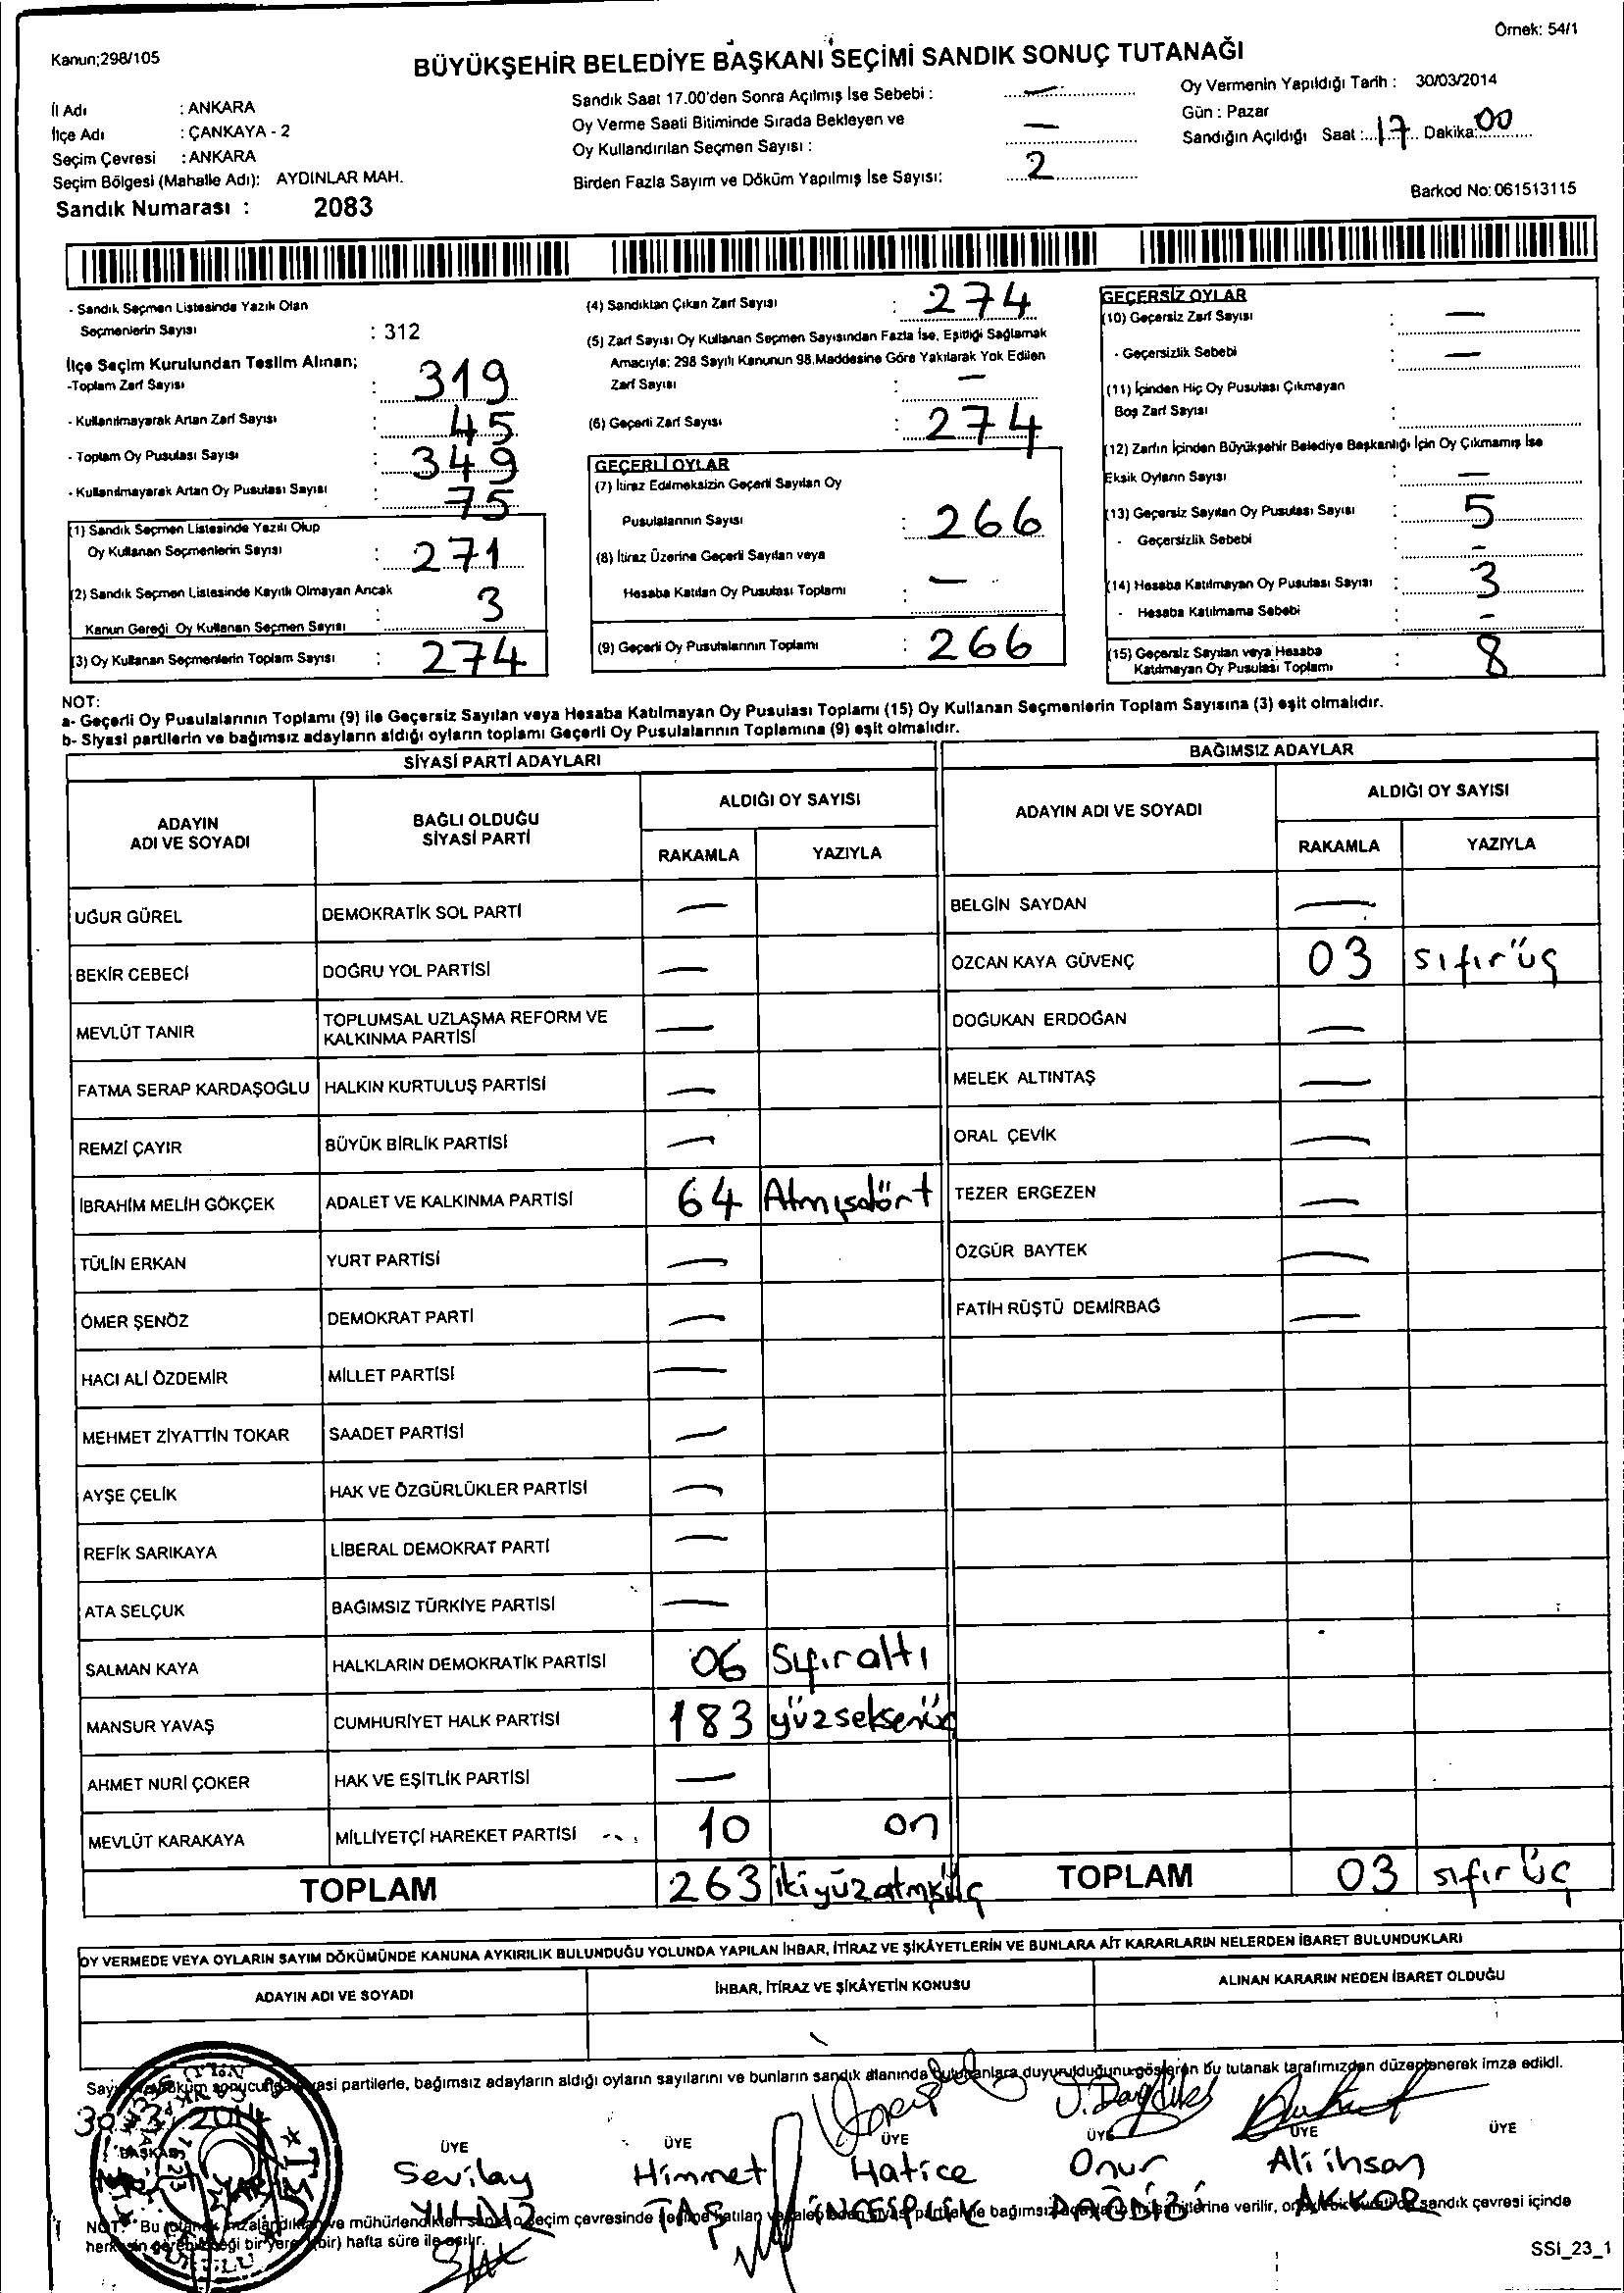 Örnek: 54/1
Kanun;298/105
BÜYÜKŞEHİR BELEDİYE BAŞKANI SEÇİMİ SANDIK SONUÇ TUTANAĞI
İl Adı : ANKARA
İlçe Adı : ÇANKAYA - 2
Seçim Çevresi : ANKARA
Seçim Bölgesi (Mahalle Adı): AYDINLAR MAH.
Sandık Numarası : 2083
Sandık Saat 17.00'den Sonra Açılmış İse Sebebi : —
Oy Verme Saati Bitiminde Sırada Bekleyen ve
Oy Kullandırılan Seçmen Sayısı : —
Birden Fazla Sayım ve Döküm Yapılmış İse Sayısı: 2
Oy Vermenin Yapıldığı Tarih : 30/03/2014
Gün : Pazar
Sandığın Açıldığı Saat : 17 Dakika: 00
Barkod No: 061513115
- Sandık Seçmen Listesinde Yazılı Olan
Seçmenlerin Sayısı : 312
İlçe Seçim Kurulundan Teslim Alınan;
-Toplam Zarf Sayısı : 319
- Kullanılmayarak Artan Zarf Sayısı : 45
- Toplam Oy Pusulası Sayısı : 349
- Kullanılmayarak Artan Oy Pusulası Sayısı : 75
(1) Sandık Seçmen Listesinde Yazılı Olup
Oy Kullanan Seçmenlerin Sayısı : 271
(2) Sandık Seçmen Listesinde Kayıtlı Olmayan Ancak
Kanun Gereği Oy Kullanan Seçmen Sayısı : 3
(3) Oy Kullanan Seçmenlerin Toplam Sayısı : 274
(4) Sandıktan Çıkan Zarf Sayısı : 274
(5) Zarf Sayısı Oy Kullanan Seçmen Sayısından Fazla İse, Eşitliği Sağlamak
Amacıyla: 298 Sayılı Kanunun 98.Maddesine Göre Yakılarak Yok Edilen
Zarf Sayısı : —
(6) Geçerli Zarf Sayısı : 274
GEÇERLİ OYLAR
(7) İtiraz Edilmeksizin Geçerli Sayılan Oy
Pusulalarının Sayısı : 266
(8) İtiraz Üzerine Geçerli Sayılan veya
Hesaba Katılan Oy Pusulası Toplamı : —
(9) Geçerli Oy Pusulalarının Toplamı : 266
GEÇERSİZ OYLAR
(10) Geçersiz Zarf Sayısı : —
- Geçersizlik Sebebi : —
(11) İçinden Hiç Oy Pusulası Çıkmayan
Boş Zarf Sayısı :
(12) Zarfın İçinden Büyükşehir Belediye Başkanlığı İçin Oy Çıkmamış İse
Eksik Oyların Sayısı : —
(13) Geçersiz Sayılan Oy Pusulası Sayısı : 5
- Geçersizlik Sebebi : -
(14) Hesaba Katılmayan Oy Pusulası Sayısı : 3
- Hesaba Katılmama Sebebi : -
(15) Geçersiz Sayılan veya Hesaba
Katılmayan Oy Pusulası Toplamı : 8
NOT:
a- Geçerli Oy Pusulalarının Toplamı (9) ile Geçersiz Sayılan veya Hesaba Katılmayan Oy Pusulası Toplamı (15) Oy Kullanan Seçmenlerin Toplam Sayısına (3) eşit olmalıdır.
b- Siyasi partilerin ve bağımsız adayların aldığı oyların toplamı Geçerli Oy Pusulalarının Toplamına (9) eşit olmalıdır.
SİYASİ PARTİ ADAYLARI
ADAYIN ADI VE SOYADI
BAĞLI OLDUĞU SİYASİ PARTİ
ALDIĞI OY SAYISI
RAKAMLA YAZIYLA
UĞUR GÜREL DEMOKRATİK SOL PARTİ —
BEKİR CEBECİ DOĞRU YOL PARTİSİ —
MEVLÜT TANIR TOPLUMSAL UZLAŞMA REFORM VE KALKINMA PARTİSİ —
FATMA SERAP KARDAŞOĞLU HALKIN KURTULUŞ PARTİSİ —
REMZİ ÇAYIR BÜYÜK BİRLİK PARTİSİ —
İBRAHİM MELİH GÖKÇEK ADALET VE KALKINMA PARTİSİ 64 Atmışdört
TÜLİN ERKAN YURT PARTİSİ —
ÖMER ŞENÖZ DEMOKRAT PARTİ —
HACI ALİ ÖZDEMİR MİLLET PARTİSİ —
MEHMET ZİYATTİN TOKAR SAADET PARTİSİ —
AYŞE ÇELİK HAK VE ÖZGÜRLÜKLER PARTİSİ —
REFİK SARIKAYA LİBERAL DEMOKRAT PARTİ —
ATA SELÇUK BAĞIMSIZ TÜRKİYE PARTİSİ —
SALMAN KAYA HALKLARIN DEMOKRATİK PARTİSİ 06 Sıfıraltı
MANSUR YAVAŞ CUMHURİYET HALK PARTİSİ 183 yüzseksenüç
AHMET NURİ ÇOKER HAK VE EŞİTLİK PARTİSİ —
MEVLÜT KARAKAYA MİLLİYETÇİ HAREKET PARTİSİ 10 on
TOPLAM 263 ikiyüzatmışüç
BAĞIMSIZ ADAYLAR
ADAYIN ADI VE SOYADI
ALDIĞI OY SAYISI
RAKAMLA YAZIYLA
BELGİN SAYDAN —
ÖZCAN KAYA GÜVENÇ 03 sıfırüç
DOĞUKAN ERDOĞAN —
MELEK ALTINTAŞ —
ORAL ÇEVİK —
TEZER ERGEZEN —
ÖZGÜR BAYTEK —
FATİH RÜŞTÜ DEMİRBAĞ —
TOPLAM 03 sıfır üç
OY VERMEDE VEYA OYLARIN SAYIM DÖKÜMÜNDE KANUNA AYKIRILIK BULUNDUĞU YOLUNDA YAPILAN İHBAR, İTİRAZ VE ŞİKÂYETLERİN VE BUNLARA AİT KARARLARIN NELERDEN İBARET BULUNDUKLARI
ADAYIN ADI VE SOYADI
İHBAR, İTİRAZ VE ŞİKÂYETİN KONUSU
ALINAN KARARIN NEDEN İBARET OLDUĞU
partilerle, bağımsız adayların aldığı oyların sayılarını ve bunların sandık alanında bulunanlara duyurulduğunu gösteren bu tutanak tarafımızdan düzenlenerek imza edildi.
30 3 2014
BAŞKAN
ÜYE Sevilay YILDIZ
ÜYE Himmet TAŞ
ÜYE Hatice İNCESPLİK
ÜYE Onur
ÜYE Ali ihsan AKKOR
ÜYE
NOT: Bu ve mühürlendikten sonra o seçim çevresinde bağımsız verilir, sandık çevresi içinde
bir yere (bir) hafta süre ile asılır.
SSI_23_1